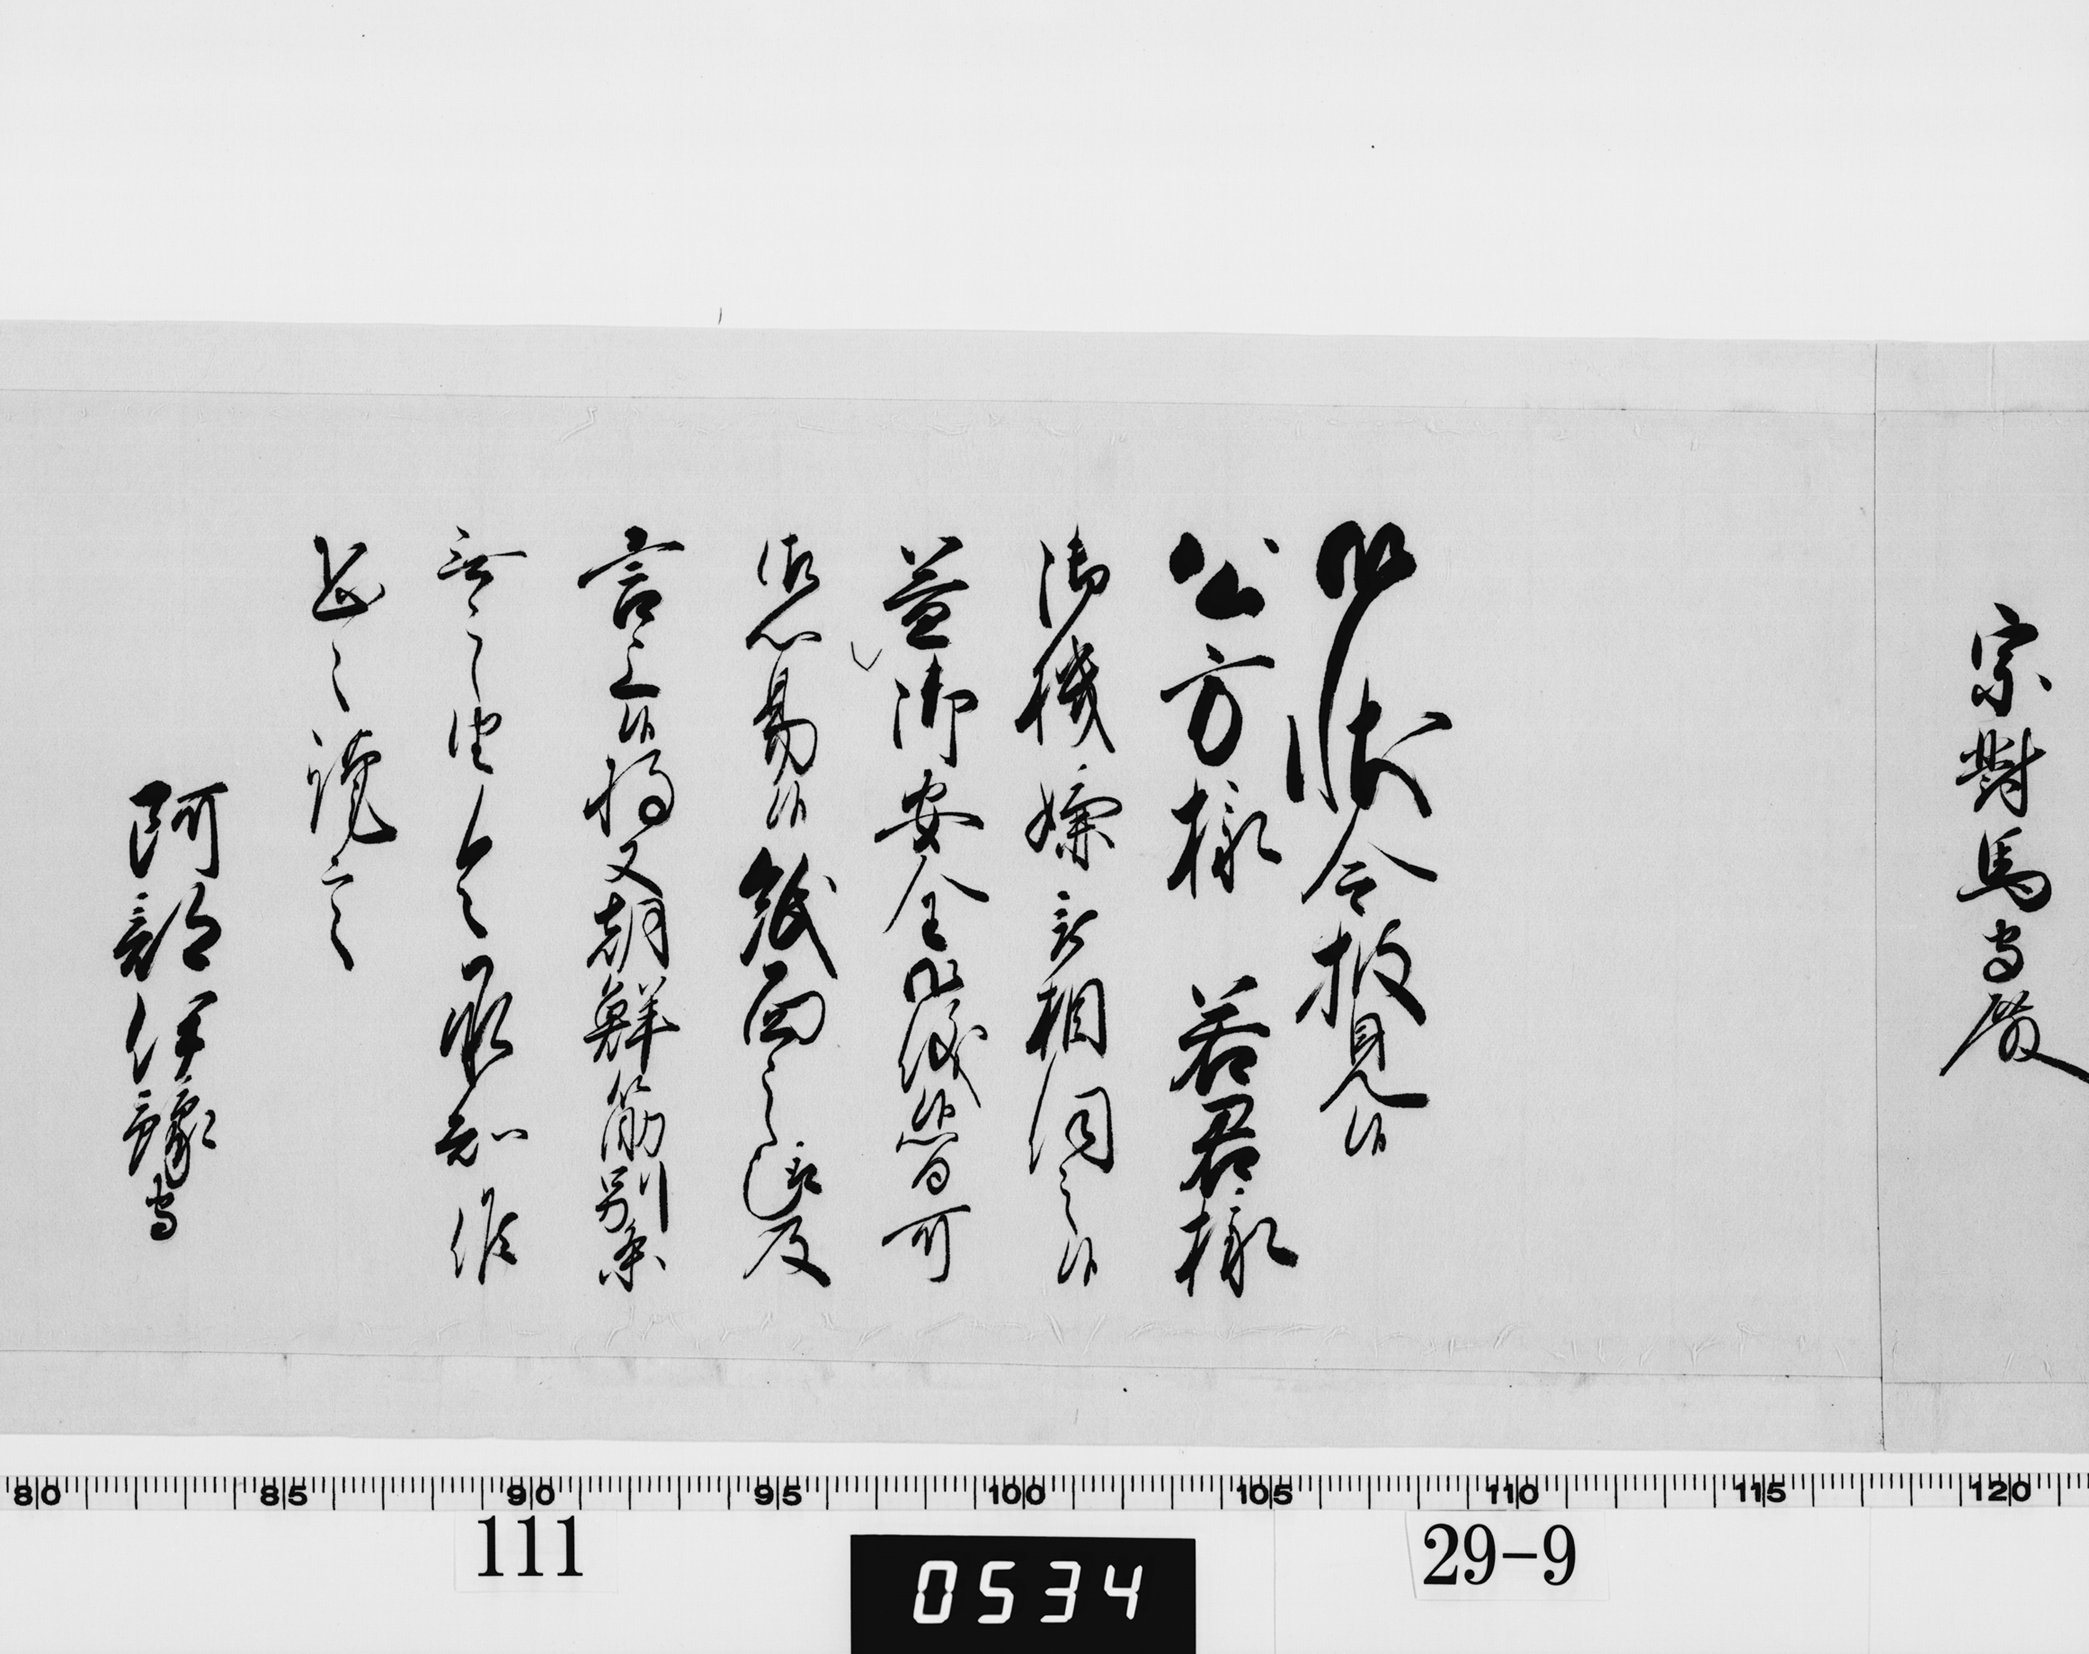 宗對馬守殿
御状令披見候
公方様 若君様
御機嫌被相伺之候
益御安全御儀候間可
御心易候紙面之趣及
言上候将又朝鮮筋別条
無之由令承知候
恐々謹言
阿部伊豫守
80 85 90 95 100 105 110 115 120
111
0534
29-9